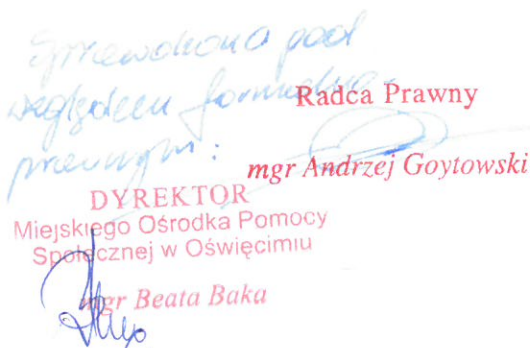 Sprawdzono pod
względem formalno-
prawnym:
Radca Prawny
mgr Andrzej Goytowski
DYREKTOR
Miejskiego Ośrodka Pomocy
Społecznej w Oświęcimiu
mgr Beata Baka